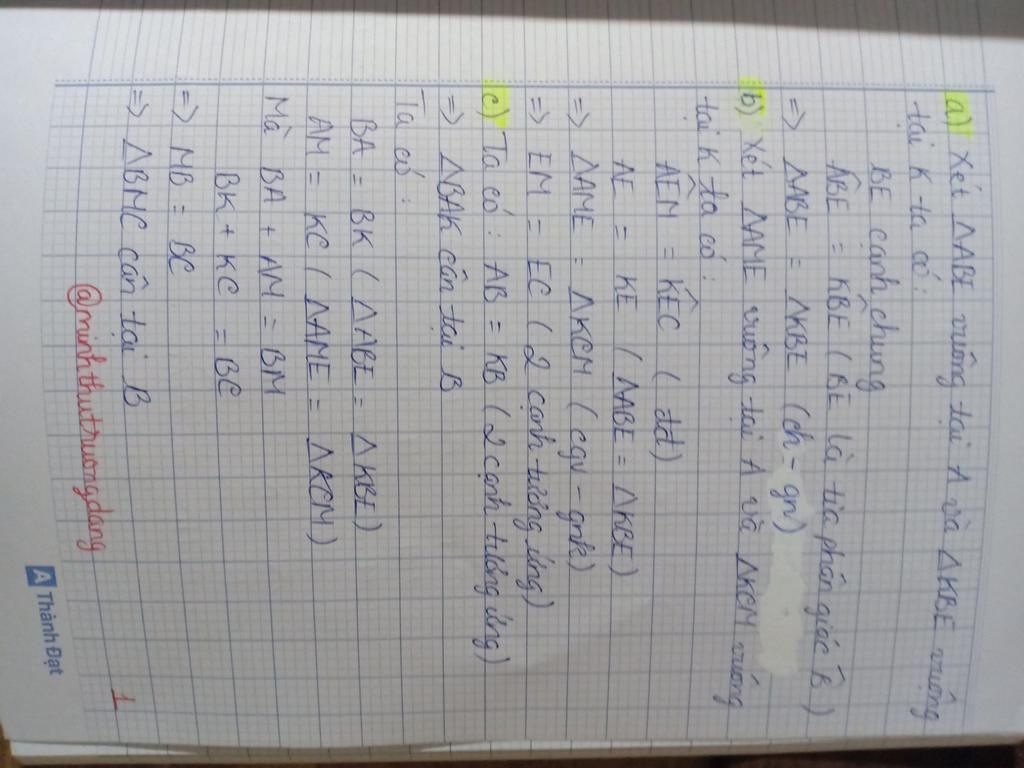 a) Xét ΔABE vuông tại A và ΔKBE vuông
tại K ta có:
BE cạnh chung
ABE = KBE (BE là tia phân giác B)
=> ΔABE = ΔKBE (ch - gn)
b) Xét ΔAME vuông tại A và ΔKCM vuông
tại K ta có:
AEM = KEC (đđ)
AE = KE (ΔABE = ΔKBE)
=> ΔAME = ΔKCM (cgv - gnk)
=> EM = EC (2 cạnh tương ứng)
c) Ta có: AB = KB (2 cạnh tương ứng)
=> ΔBAK cân tại B
Ta có:
BA = BK (ΔABE = ΔKBE)
AM = KC (ΔAME = ΔKCM)
Mà BA + AM = BM
BK + KC = BC
=> MB = BC
=> ΔBMC cân tại B
@minhthutruongdang
1
A Thành Đạt